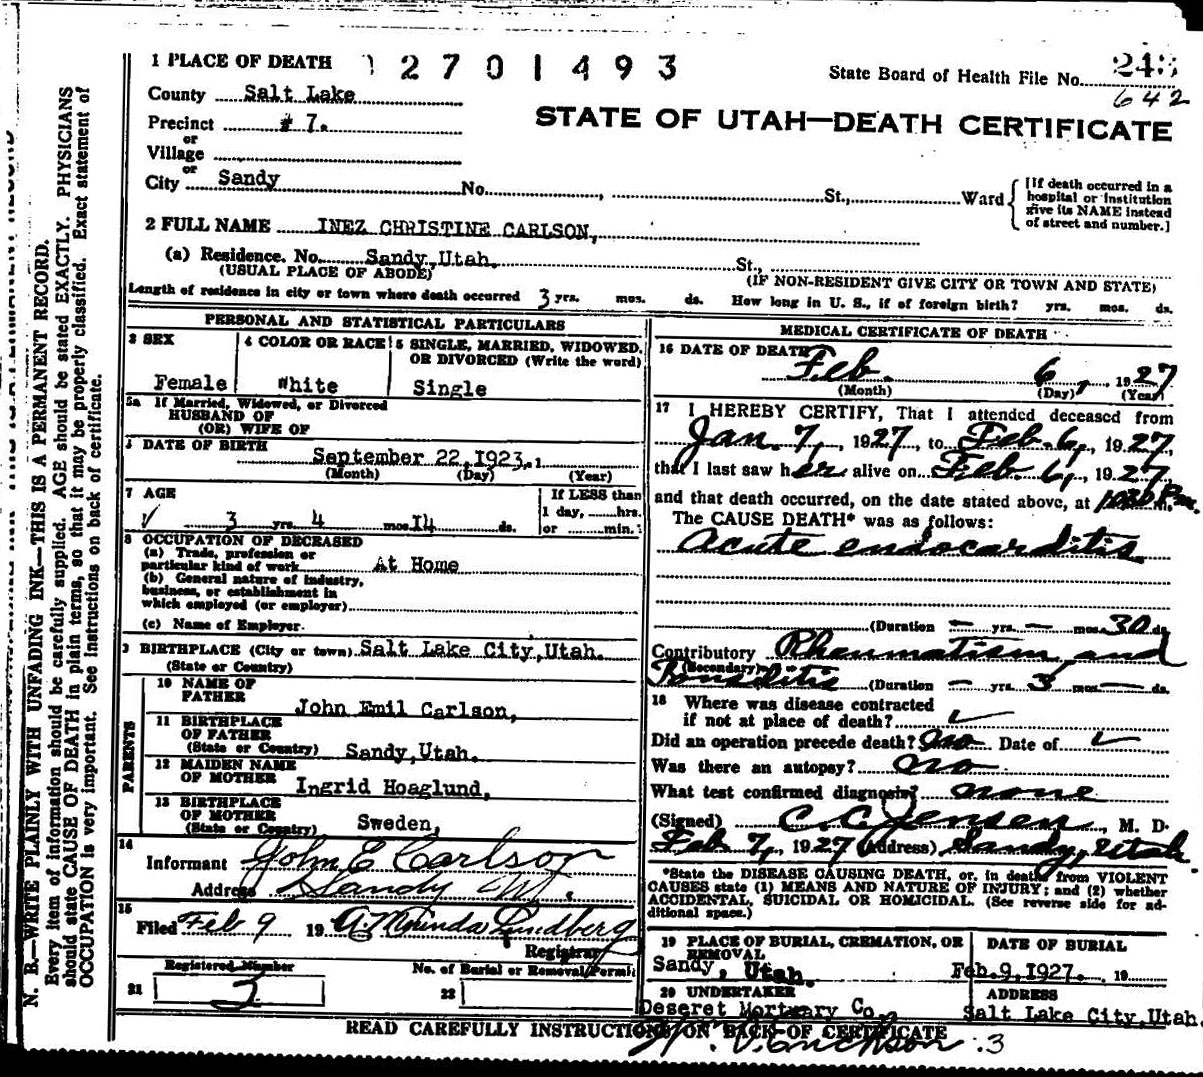 1 PLACE OF DEATH 2701493
State Board of Health File No. 243
642
County Salt Lake
STATE OF UTAH—DEATH CERTIFICATE
Precinct # 7.
or
Village
or
City Sandy No. , St., Ward
[If death occurred in a
hospital or institution
give its NAME instead
of street and number.]
2 FULL NAME INEZ CHRISTINE CARLSON,
(a) Residence. No. Sandy,Utah. St.,
(USUAL PLACE OF ABODE) (IF NON-RESIDENT GIVE CITY OR TOWN AND STATE)
Length of residence in city or town where death occurred 3 yrs. mos. ds. How long in U. S., if of foreign birth? yrs. mos. ds.
PERSONAL AND STATISTICAL PARTICULARS
3 SEX 4 COLOR OR RACE 5 SINGLE, MARRIED, WIDOWED,
OR DIVORCED (Write the word)
Female White Single
5a If Married, Widowed, or Divorced
HUSBAND OF
(OR) WIFE OF
DATE OF BIRTH
September 22,1923.
(Month) (Day) (Year)
7 AGE If LESS than
1 day, hrs.
3 yrs. 4 mos. 14 ds. or min.
8 OCCUPATION OF DECEASED
(a) Trade, profession or
particular kind of work At Home
(b) General nature of industry,
business, or establishment in
which employed (or employer)
(c) Name of Employer.
9 BIRTHPLACE (City or town) Salt Lake City,Utah.
(State or Country)
PARENTS
10 NAME OF
FATHER
John Emil Carlson,
11 BIRTHPLACE
OF FATHER
(State or Country) Sandy,Utah.
12 MAIDEN NAME
OF MOTHER
Ingrid Hoaglund,
13 BIRTHPLACE
OF MOTHER
(State or Country) Sweden,
14
Informant John E Carlson
Address Sandy
15
Filed Feb 9 19 A. Mrinda Lundberg
Registrar
Registered Number No. of Burial or Removal Permit
21 3 22
MEDICAL CERTIFICATE OF DEATH
16 DATE OF DEATH
Feb. 6, 1927
(Month) (Day) (Year)
17 I HEREBY CERTIFY, That I attended deceased from
Jan. 7, 1927, to Feb. 6, 1927,
that I last saw her alive on Feb. 6, 1927
and that death occurred, on the date stated above, at m.
The CAUSE DEATH* was as follows:
Acute endocarditis
(Duration — yrs. — mos. 30 ds.
Contributory Rheumatism and
(Secondary)
Tonsilitis (Duration — yrs. 3 mos. — ds.
18 Where was disease contracted
if not at place of death? ✓
Did an operation precede death? no Date of ✓
Was there an autopsy? no
What test confirmed diagnosis? none
(Signed) C. C. Jensen, M. D.
Feb 7, 1927 (Address) Sandy, Utah
*State the DISEASE CAUSING DEATH, or, in deaths from VIOLENT
CAUSES state (1) MEANS AND NATURE OF INJURY; and (2) whether
ACCIDENTAL, SUICIDAL OR HOMICIDAL. (See reverse side for ad-
ditional space.)
19 PLACE OF BURIAL, CREMATION, OR REMOVAL DATE OF BURIAL
Sandy, Utah. Feb.9,1927. 19
20 UNDERTAKER ADDRESS
Deseret Mortuary Co. Salt Lake City,Utah
READ CAREFULLY INSTRUCTIONS ON BACK OF CERTIFICATE
3
N. B.—WRITE PLAINLY WITH UNFADING INK—THIS IS A PERMANENT RECORD.
Every item of information should be carefully supplied. AGE should be stated EXACTLY. PHYSICIANS
should state CAUSE OF DEATH in plain terms, so that it may be properly classified. Exact statement of
OCCUPATION is very important. See instructions on back of certificate.